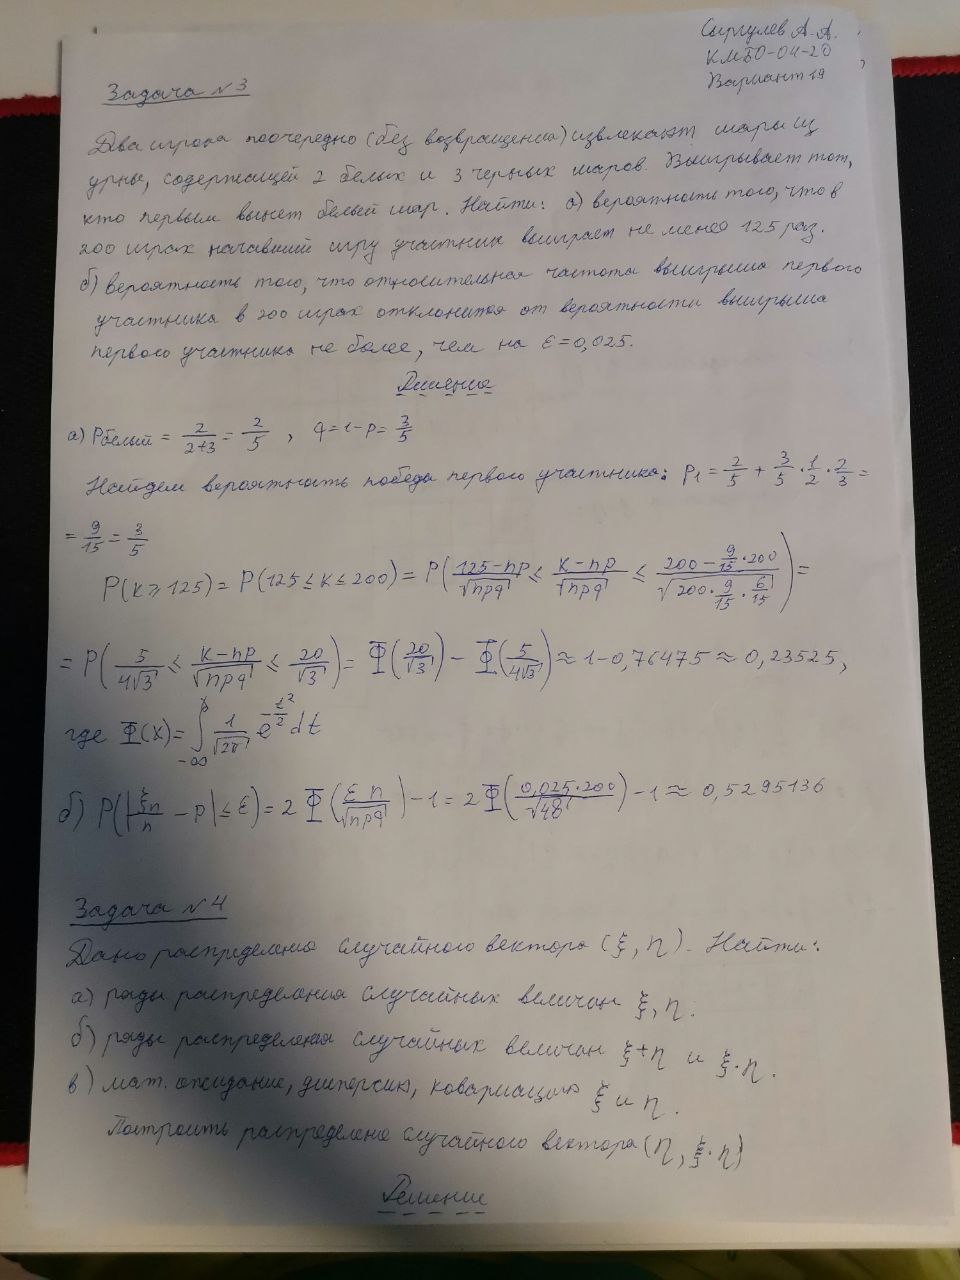 Сыргулев А.А.
КМБО-04-20
Вариант 19
Задача №3
Два игрока поочередно (без возвращения) извлекают шары из
урны, содержащей 2 белых и 3 черных шаров. Выигрывает тот,
кто первым вынет белый шар. Найти: а) вероятность того, что в
200 играх начавший игру участник выиграет не менее 125 раз.
б) вероятность того, что относительная частота выигрыша первого
участника в 200 играх отклонится от вероятности выигрыша
первого участника не более, чем на ε=0,025.
Решение
а) Pбелый = 2/(2+3) = 2/5 , q=1-p= 3/5
Найдем вероятность победа первого участника: P₁ = 2/5 + 3/5 · 1/2 · 2/3 =
= 9/15 = 3/5
P(k≥125) = P(125≤k≤200) = P( (125-np)/√npq ≤ (k-np)/√npq ≤ (200 - 9/15·200)/√(200·9/15·6/15) ) =
= P( 5/4√3 ≤ (k-np)/√npq ≤ 20/√3 ) = Φ(20/√3) - Φ(5/4√3) ≈ 1-0,76475 ≈ 0,23525,
где Φ(x) = ∫_{-∞}^{x} 1/√2π e^{-t²/2} dt
б) P(|ξn/n - p| ≤ ε) = 2 Φ(ε n/√npq) - 1 = 2 Φ(0,025·200/√48) - 1 ≈ 0,5295136
Задача №4
Дано распределение случайного вектора (ξ, η). Найти:
а) ряды распределения случайных величин ξ, η.
б) ряды распределения случайных величин ξ+η и ξ·η.
в) мат. ожидание, дисперсию, ковариацию ξ и η.
Построить распределение случайного вектора (η, ξ·η)
Решение